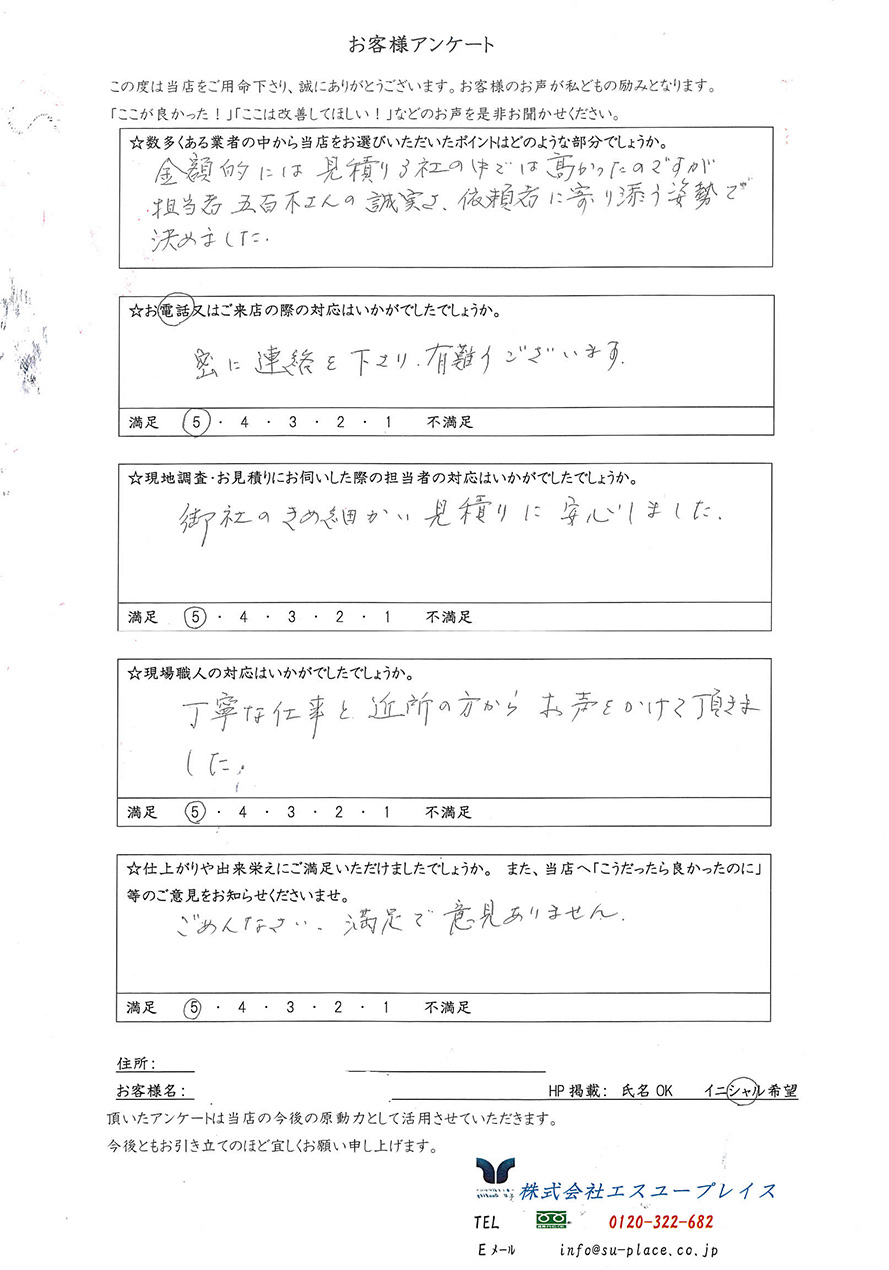 お客様アンケート
この度は当店をご用命下さり、誠にありがとうございます。お客様のお声が私どもの励みとなります。
「ここが良かった！」「ここは改善してほしい！」などのお声を是非お聞かせください。
☆数多くある業者の中から当店をお選びいただいたポイントはどのような部分でしょうか。
金額的には見積り3社の中では高かったのですが
担当者 五百木さんの誠実さ、依頼者に寄り添う姿勢で
決めました.
☆お電話又はご来店の際の対応はいかがでしたでしょうか。
密に連絡を下さり.有難うございます.
満足 5 ・ 4 ・ 3 ・ 2 ・ 1 不満足
☆現地調査・お見積りにお伺いした際の担当者の対応はいかがでしたでしょうか。
御社のきめ細かい見積りに安心しました.
満足 5 ・ 4 ・ 3 ・ 2 ・ 1 不満足
☆現場職人の対応はいかがでしたでしょうか。
丁寧な仕事と近所の方からお声をかけて頂きま
した.
満足 5 ・ 4 ・ 3 ・ 2 ・ 1 不満足
☆仕上がりや出来栄えにご満足いただけましたでしょうか。 また、当店へ「こうだったら良かったのに」
等のご意見をお知らせくださいませ。
ごめんなさい.満足で意見ありません.
満足 5 ・ 4 ・ 3 ・ 2 ・ 1 不満足
住所:
お客様名: HP掲載: 氏名OK イニシャル希望
頂いたアンケートは当店の今後の原動力として活用させていただきます。
今後ともお引き立てのほど宜しくお願い申し上げます。
株式会社エスユープレイス
TEL 0120-322-682
Eメール info@su-place.co.jp